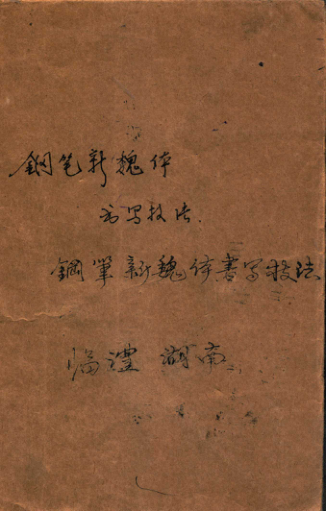 鋼笔新魏体
书写技法.
鋼筆新魏体書写技法
临澧 湖南